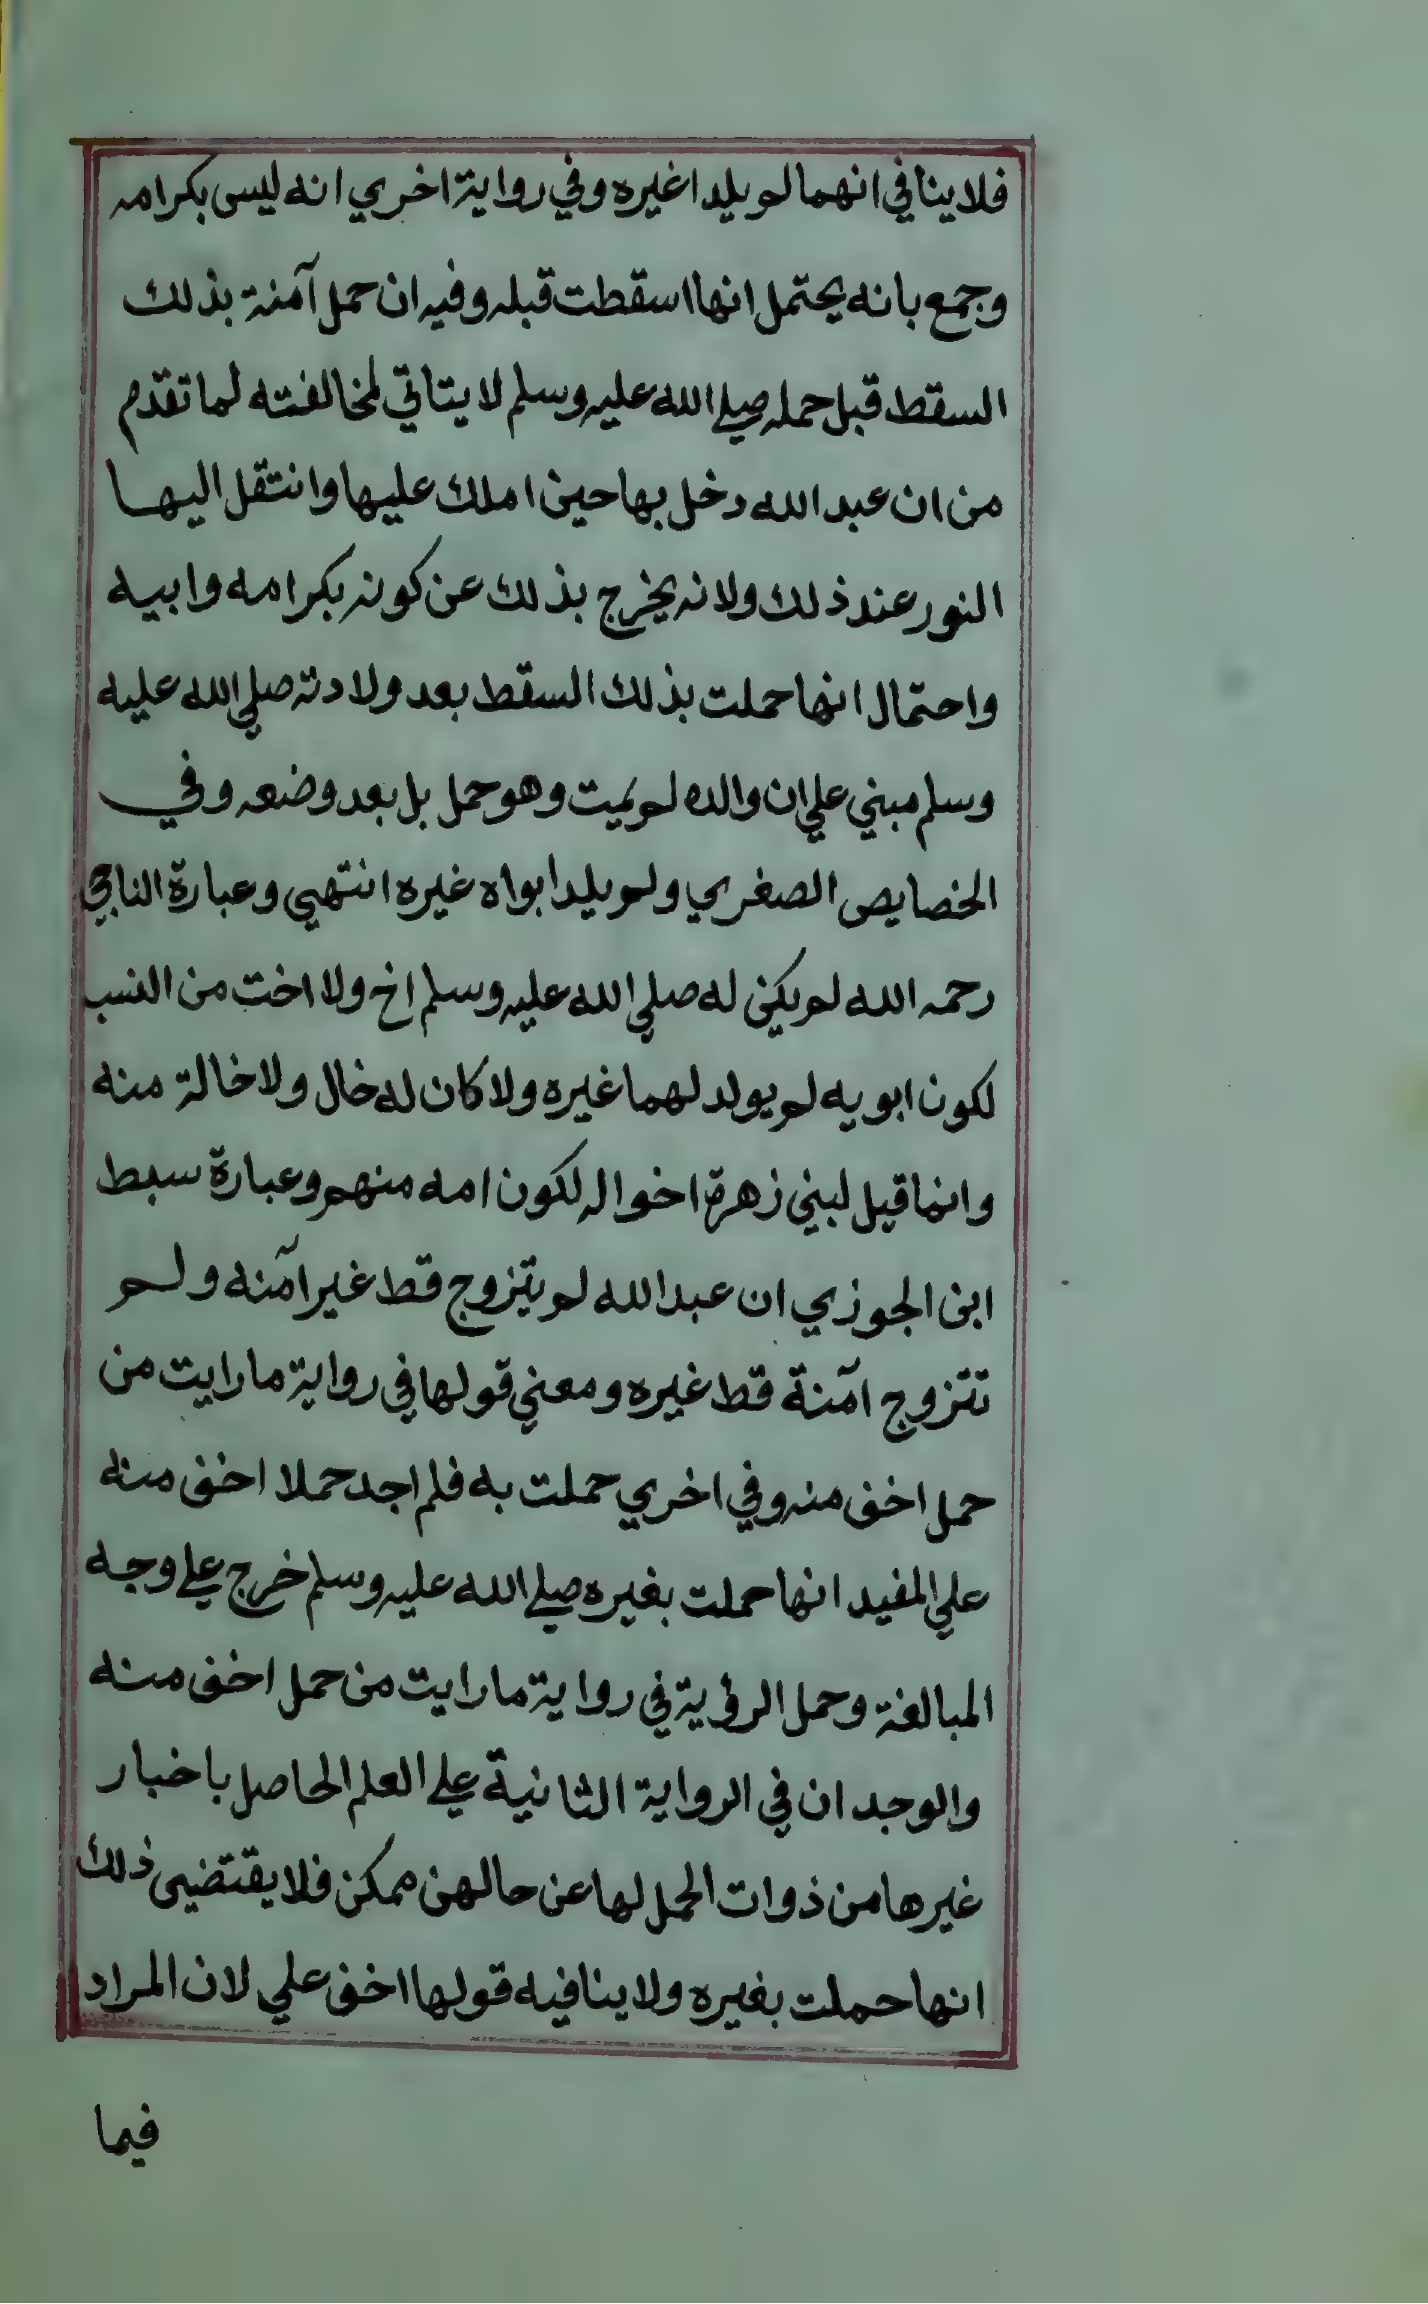 فلاينافي انهما لم يلدا غيره وفي رواية اخري انه ليس بكرامه
وجمع بانه يحتمل انها اسقطت قبله وفيه ان حمل آمنة بذلك
السقط قبل حمله صلي الله عليه وسلم لا يتاتي لمخالفته لما تقدم
من ان عبد الله دخل بها حين املك عليها وانتقل اليها
النور عند ذلك ولانه يخرج بذلك عن كونه بكرامه وابيه
واحتمال انها حملت بذلك السقط بعد ولادته صلي الله عليه
وسلم مبني علي ان والده لم يمت وهو حمل بل بعد وضعه وفي
الخصايص الصغري ولم يلد ابواه غيره انتهي وعبارة الناجي
رحمه الله لم يكن له صلي الله عليه وسلم اخ ولا اخت من النسب
لكون ابويه لم يولد لهما غيره ولا كان له خال ولا خالة منه
وانما قيل لبني زهرة اخواله لكون امه منهم وعبارة سبط
ابن الجوزي ان عبد الله لم يتزوج قط غير آمنه ولم
تتزوج آمنة قط غيره ومعني قولها في رواية ما رايت من
حمل اخف منه وفي اخري حملت به فلم اجد حملا اخف منه
علي المفيد انها حملت بغيره صلي الله عليه وسلم خرج علي وجه
المبالغة وحمل الرؤية في رواية ما رايت من حمل اخف منه
والوجدان في الرواية الثانية علي العلم الحاصل باخبار
غيرها من ذوات الحمل لها عن حالهن ممكن فلا يقتضي ذلك
انها حملت بغيره ولا ينافيه قولها اخف علي لان المراد
فيما